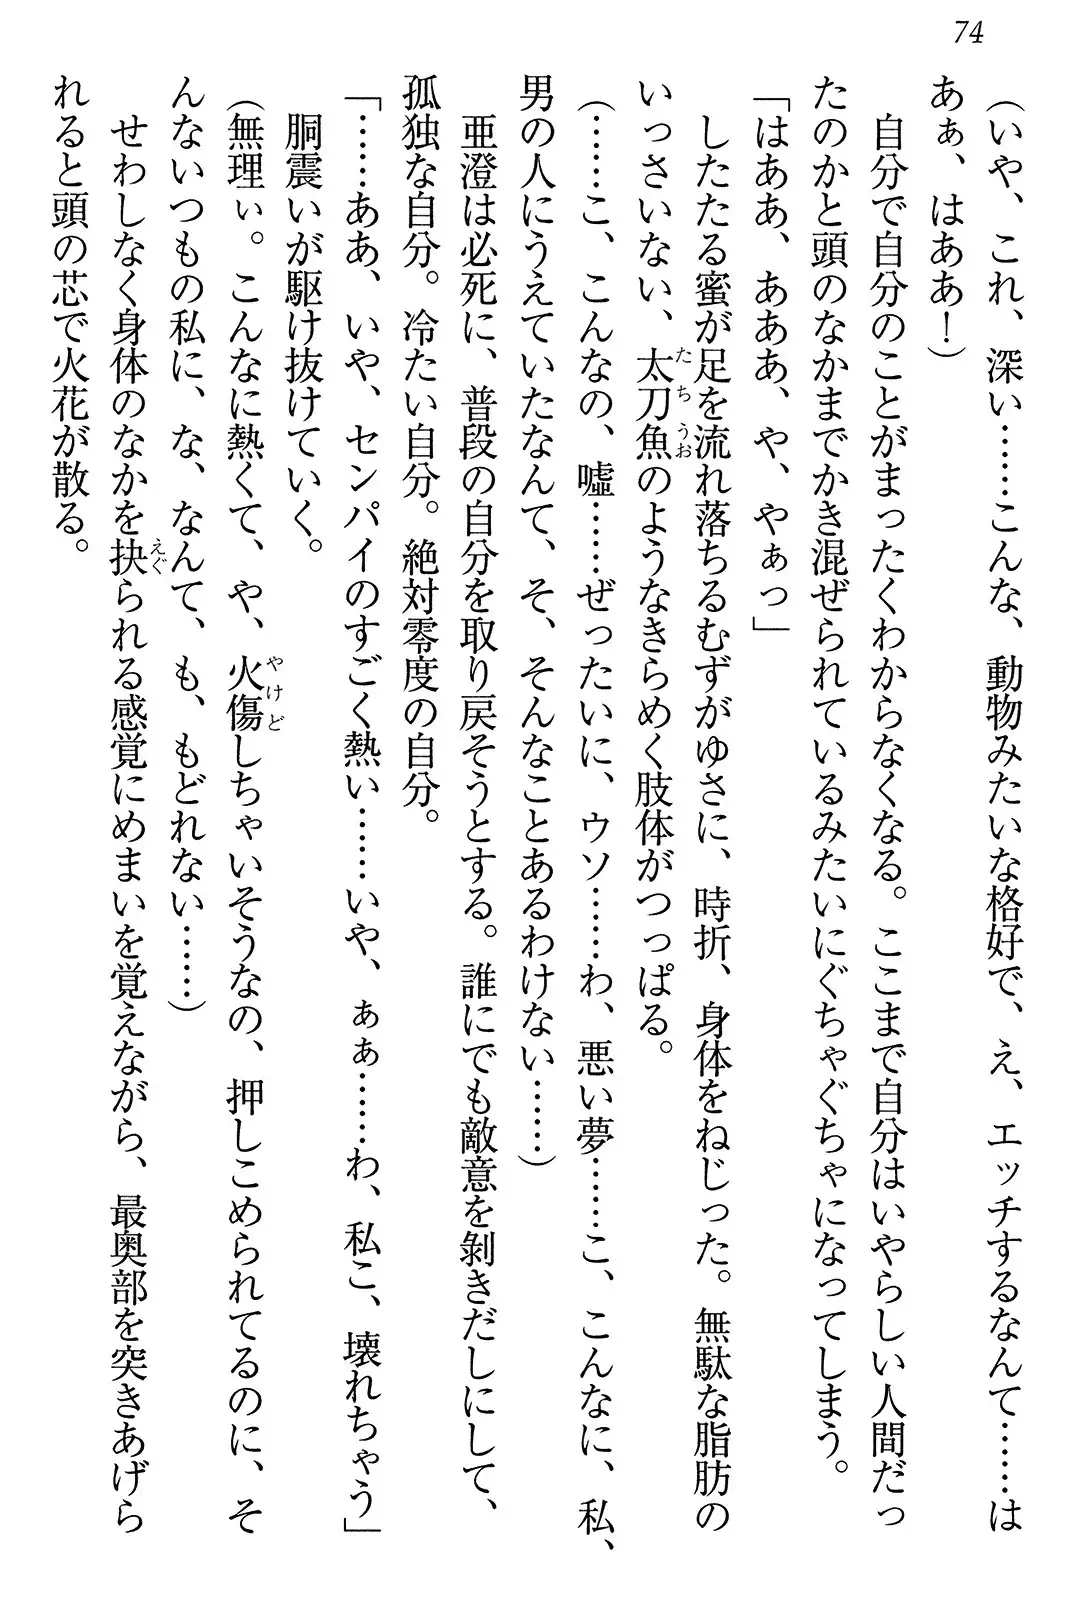 74
(いや、これ、深い……こんな、動物みたいな格好で、え、エッチするなんて……は
あぁ、はああ!)
自分で自分のことがまったくわからなくなる。ここまで自分はいやらしい人間だっ
たのかと頭のなかまでかき混ぜられているみたいにぐちゃぐちゃになってしまう。
「はああ、あああ、や、やぁっ」
したたる蜜が足を流れ落ちるむずがゆさに、時折、身体をねじった。無駄な脂肪の
いっさいない、太刀魚のようなきらめく肢体がつっぱる。
(……こ、こんなの、嘘……ぜったいに、ウソ……わ、悪い夢……こ、こんなに、私、
男の人にうえていたなんて、そ、そんなことあるわけない……)
亜澄は必死に、普段の自分を取り戻そうとする。誰にでも敵意を剝きだしにして、
孤独な自分。冷たい自分。絶対零度の自分。
「……ああ、いや、センパイのすごく熱い……いや、ぁぁ……わ、私こ、壊れちゃう」
胴震いが駆け抜けていく。
(無理ぃ。こんなに熱くて、や、火傷しちゃいそうなの、押しこめられてるのに、そ
んないつもの私に、な、なんて、も、もどれない……)
せわしなく身体のなかを抉られる感覚にめまいを覚えながら、最奥部を突きあげら
れると頭の芯で火花が散る。